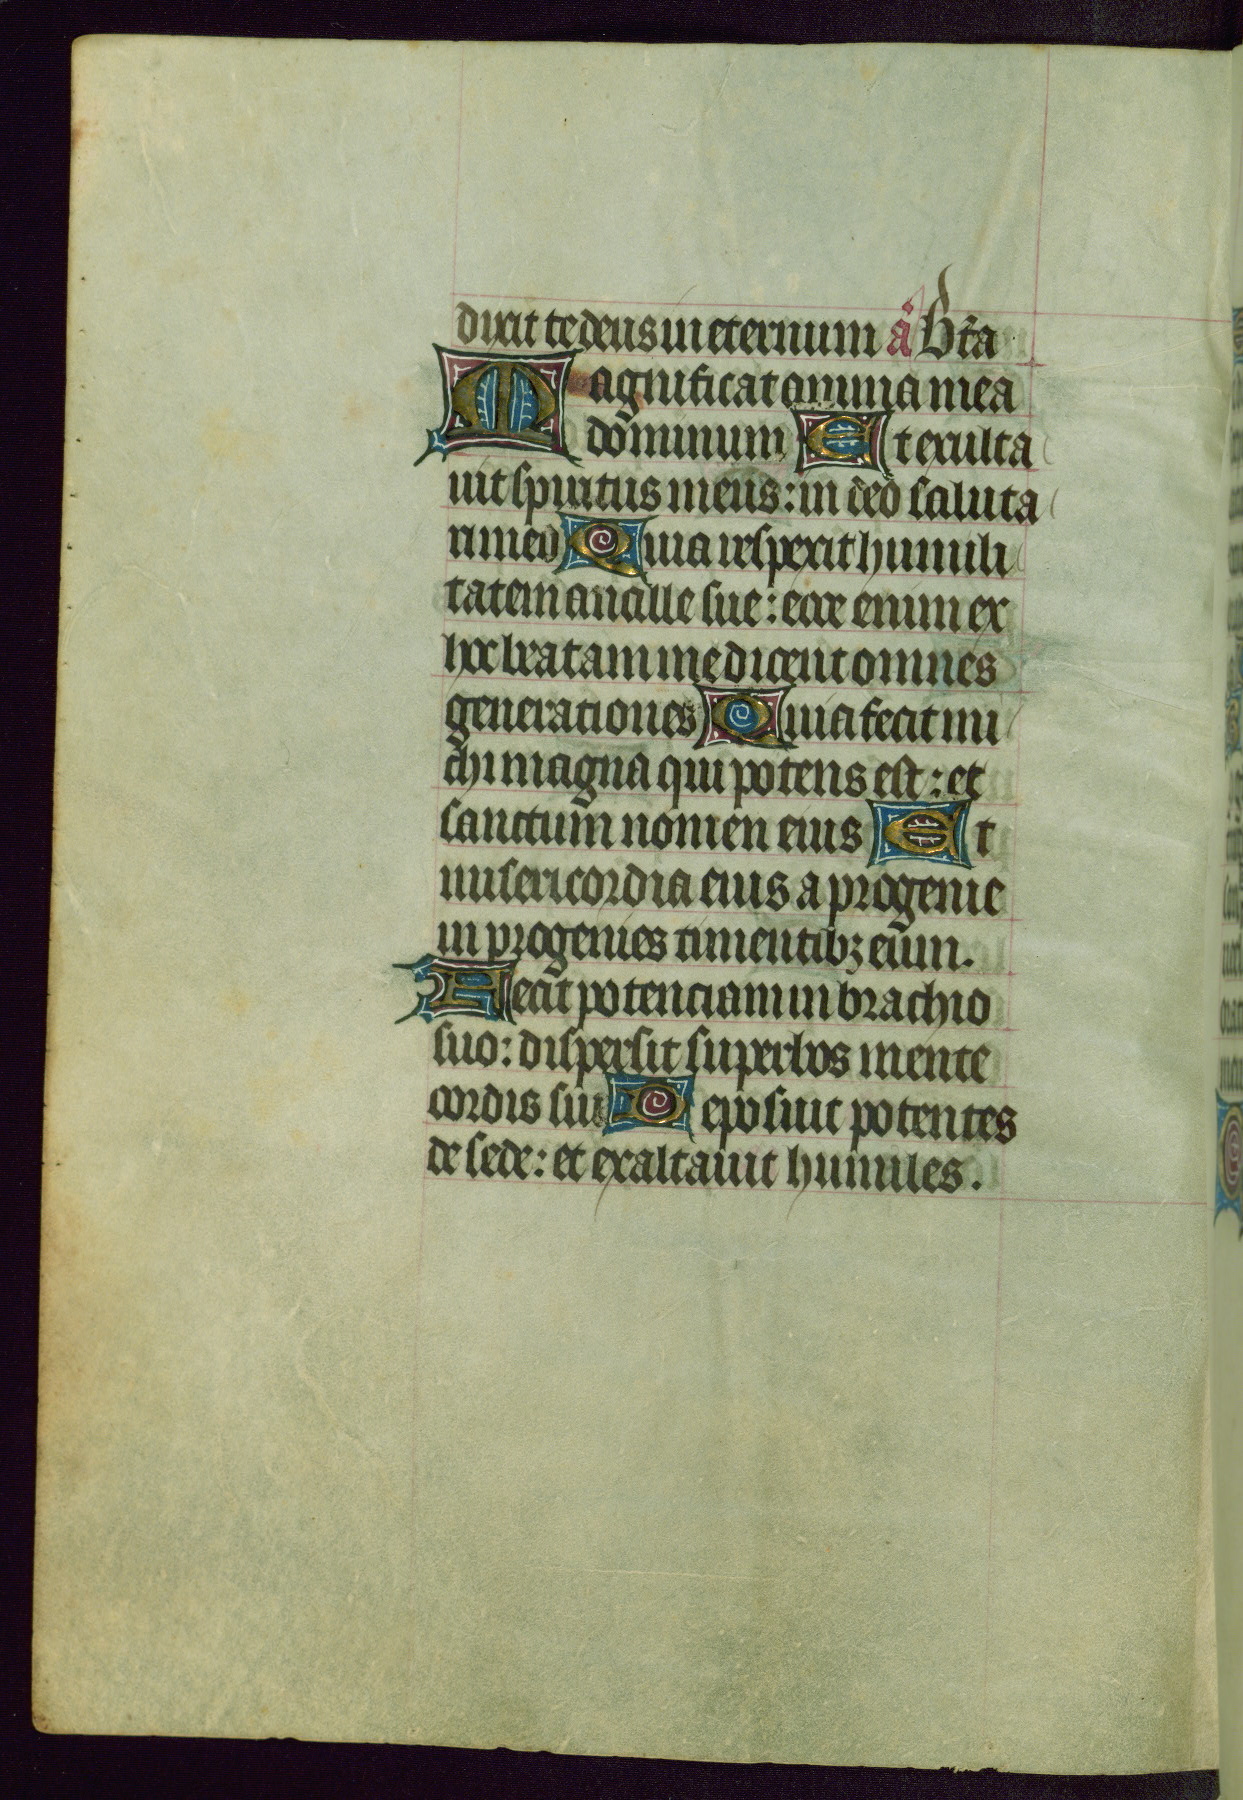 dixit te deus in eternum a̅ Bt̅a
Magnificat anima mea
dominum Et exulta
uit spiritus meus: in deo saluta
ri meo Quia respexit humili
tatem ancille sue: ecce enim ex
hoc beatam me dicent omnes
generationes Quia fecit mi
chi magna qui potens est: et
sanctum nomen eius Et
misericordia eius a progenie
in progenies timentibꝫ eum.
Fecit potenciam in brachio
suo: dispersit superbos mente
cordis sui Deposuit potentes
de sede: et exaltauit humiles.